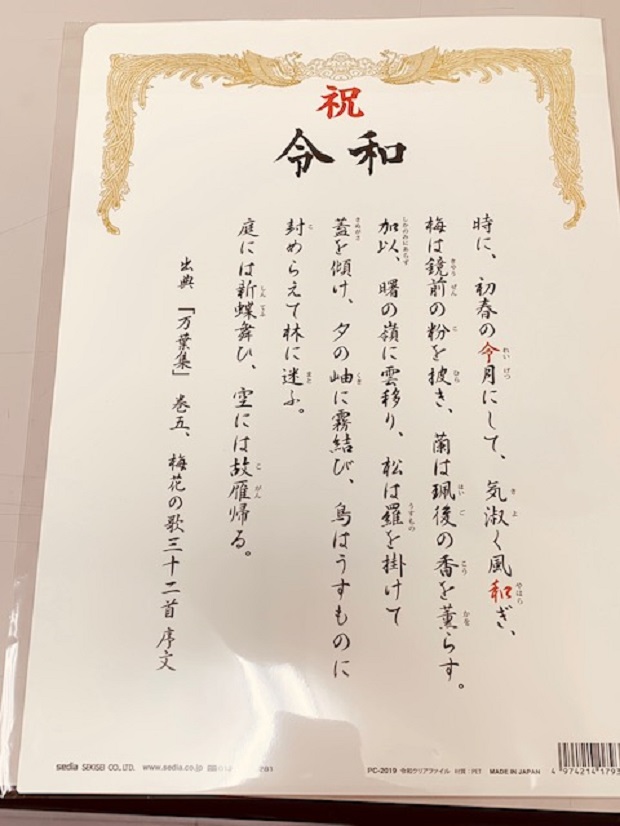 祝
令和
時に、初春の令月にして、気淑く風和ぎ、
梅は鏡前の粉を披き、蘭は珮後の香を薫らす。
加以、曙の嶺に雲移り、松は羅を掛けて
蓋を傾け、夕の岫に霧結び、鳥はうすものに
封めらえて林に迷ふ。
庭には新蝶舞ひ、空には故雁帰る。
出典 『万葉集』 巻五、梅花の歌三十二首序文
sedia SEKISEI CO., LTD. www.sedia.co.jp
PC-2019 令和クリアファイル 材質:PET MADE IN JAPAN
4 974214 1793